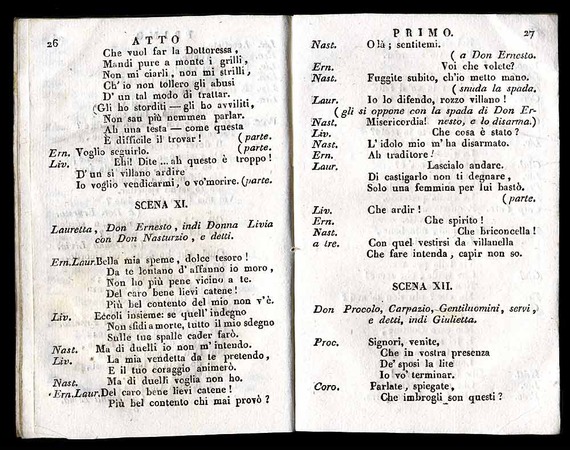 26
ATTO
Che vuol far la Dottoressa,
Mandi pure a monti i grilli,
Non mi ciarli, non mi strilli,
Ch'io non tollero gli abusi
D'un tal modo di trattar.
(Gli ho storditi — gli ho avviliti,
Non san più nemmen parlar.
Ah una testa — come questa
E difficile il trovar! (parte.
Ern. Voglio seguirlo. (parte.
Liv. Ehi! Dite ... ah questo è troppo!
D'un sì villano ardire
Io voglio vendicarmi, o vo'morire. (parte.
SCENA XI.
Lauretta, Don Ernesto, indi Donna Livia
con Don Nasturzio, e detti.
Ern.Laur. Bella mia speme, dolce tesoro!
Da te lontano d'affanno io moro,
Non ho più pene vicino a te.
Del caro bene lievi catene!
Più bel contento del mio non v'è.
Liv. Eccoli insieme: se quell'indegno
Non sfidi a morte, tutto il mio sdegno
Sulle tue spalle cader farò.
Nast. Ma di duelli io non m'intendo.
Liv. La mia vendetta da te pretendo,
E il tuo coraggio animerò.
Nast. Ma di duelli voglia non ho.
Ern.Laur. Del caro bene lievi catene!
Più bel contento chi mai provò?
PRIMO.
27
Nast. Olà; sentitemi.
( a Don Ernesto.
Ern. Voi che volete?
Nast. Fuggite subito, ch'io metto mano.
( snuda la spada.
Laur. Io lo difendo, rozzo villano!
( gli si oppone con la spada di Don Er-
Nast. Misericordia! nesto, e lo disarma.)
Liv. Che cosa è stato?
Nast. L'idolo mio m'ha disarmato.
Ern. Ah traditore!
Laur. Lascialo andare.
Di castigarlo non ti degnare,
Solo una femmina per lui bastò.
( parte.
Liv. Che ardir!
Ern. Che spirito!
Nast. Che briconcella!
a tre. Con quel vestirsi da villanella
Che fare intenda, capir non so.
SCENA XII.
Don Procolo, Carpazio, Gentiluomini, servi,
e detti, indi Giulietta.
Proc. Signori, venite,
Che in vostra presenza
De' sposi la lite
Io vo' terminar.
Coro. Parlate, spiegate,
Che imbrogli son questi?